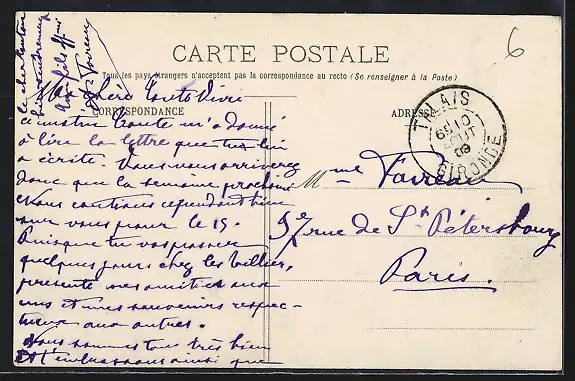 CARTE POSTALE
Tous les pays étrangers n'acceptent pas la correspondance au recto (Se renseigner à la Poste)
CORRESPONDANCE
ADRESSE
6
TALAIS
10
AOUT
09
GIRONDE
Ma chère
m'a donné
à lire la lettre que tu lui
a écrite. Vous nous arriverez
donc que la semaine prochaine
Nous comptions cependant bien
sur vous pour le 15.
Puisque tu vas passer
quelques jours chez les Tellier,
présente mes amitiés aux
uns et mes souvenirs respec-
tueux aux autres.
Nous sommes tous très bien
et t'embrassons ainsi que
le cher
ton fils aff
Mme Favreau
57 rue de St Pétersbourg
Paris.